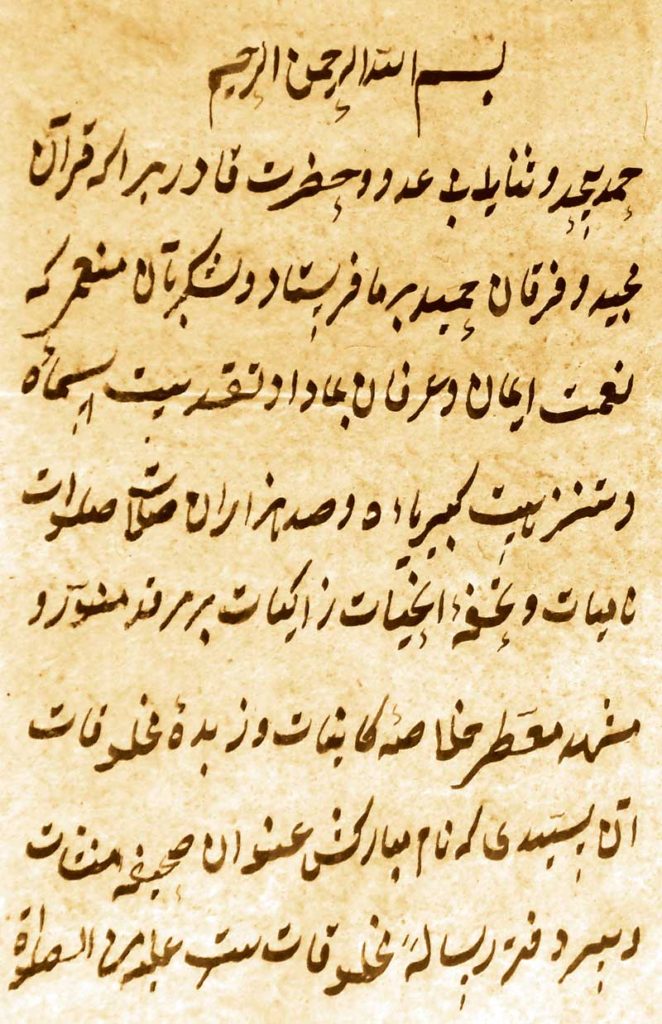 بسم الله الرحمن الرحیم
حمد بیحد و ثنای بی عدد و حضرت قادر براکه قرآن
مجید و فرقان حمید بر ما فرستاد و شکر بآن منعمی که
نعمت ایمان و عرفان بما داد تقدست اسماؤه
و تنزهت کبریاءه و صد هزاران صلات صلوات
نامیات و تحفهٔ التحیات زاکیات بر مرقد منور و
مشهد معطر خلاصهٔ کاینات و زبدهٔ مخلوقات
آن سیدی که نام مبارکش عنوان صحیفه منشآت
و سر دفتر رسالهٔ مخلوقات ست علیه من الصلوة